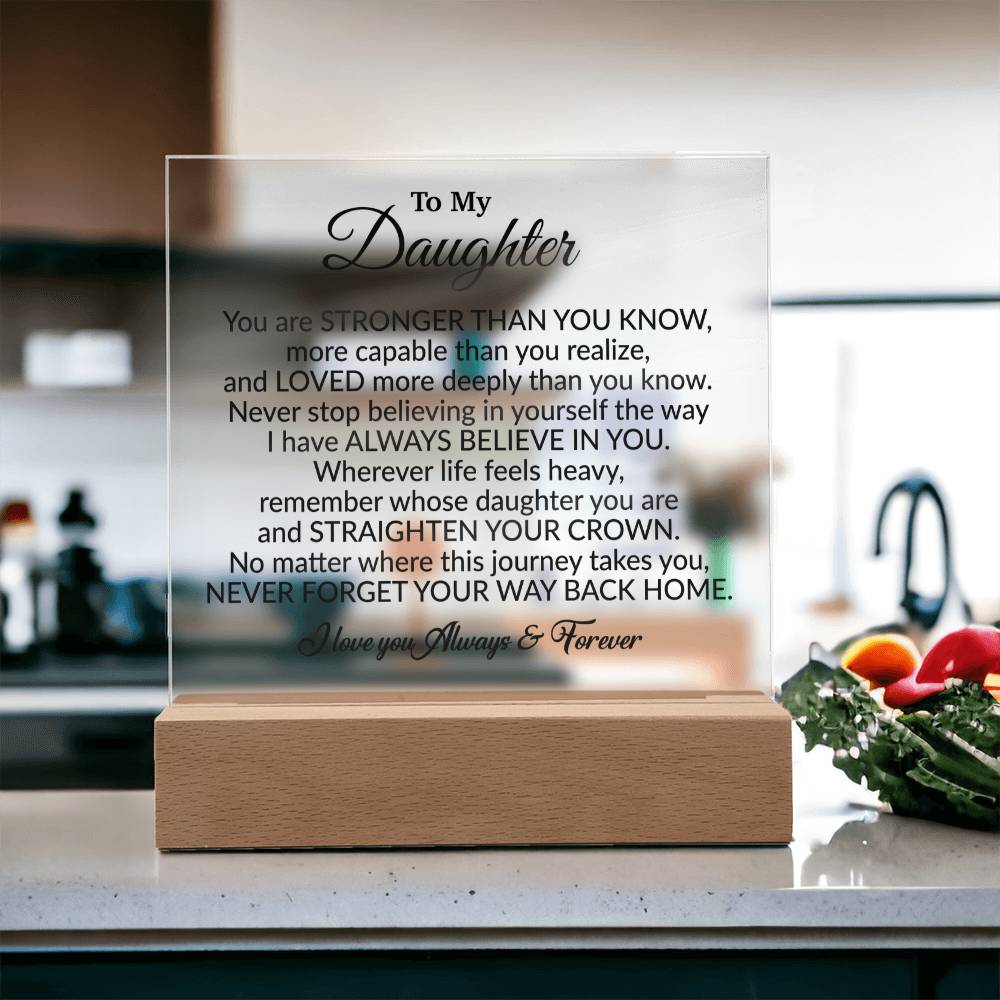 To My
Daughter
You are STRONGER THAN YOU KNOW,
more capable than you realize,
and LOVED more deeply than you know.
Never stop believing in yourself the way
I have ALWAYS BELIEVE IN YOU.
Wherever life feels heavy,
remember whose daughter you are
and STRAIGHTEN YOUR CROWN.
No matter where this journey takes you,
NEVER FORGET YOUR WAY BACK HOME.
I love you Always & Forever